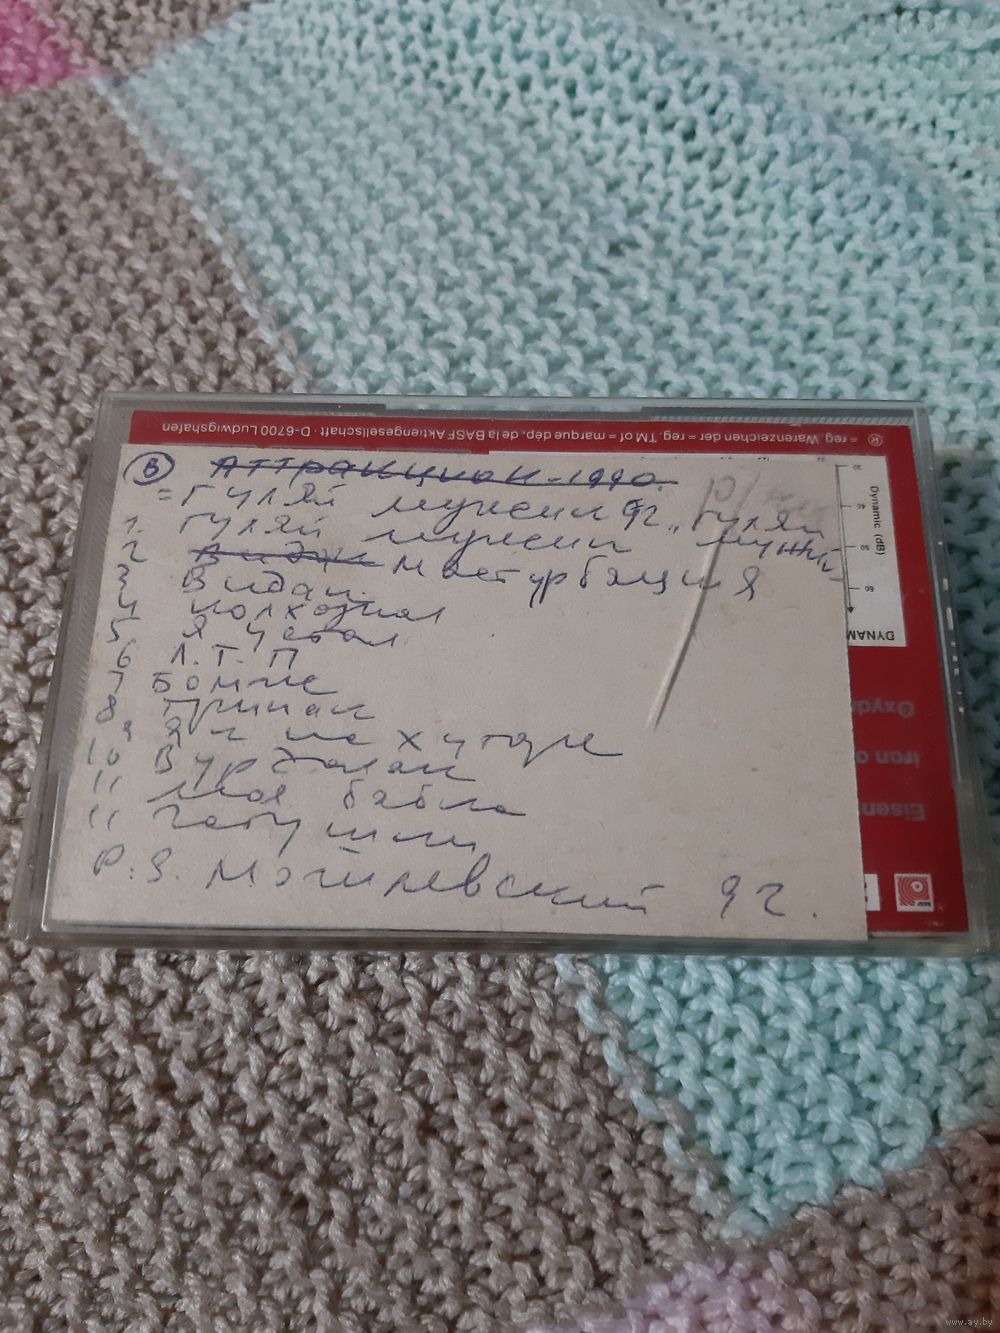 ® = reg. Warenzeichen der = reg. TM of = marque dép. de la BASF Aktiengesellschaft · D-6700 Ludwigshafen
В Аттракцион-1990.
= Гуляй мужик 92 г. "Гуляй мужик"
1. Гуляй мужик
2 Видак Мастурбация
3 Видак
4 Колхозная
5. Я устал
6 Л.Т.П
7 Бомже
8 Тринан
9 Я и на хуторе
10 Вурдалак
11 Моя бабка
11 Частушки
P.S. Могилевский 92.
Dynamic (dB)
30
40
50
60
DYNAM
Oxyd
Iron o
Eisen
BASF
www.ay.by